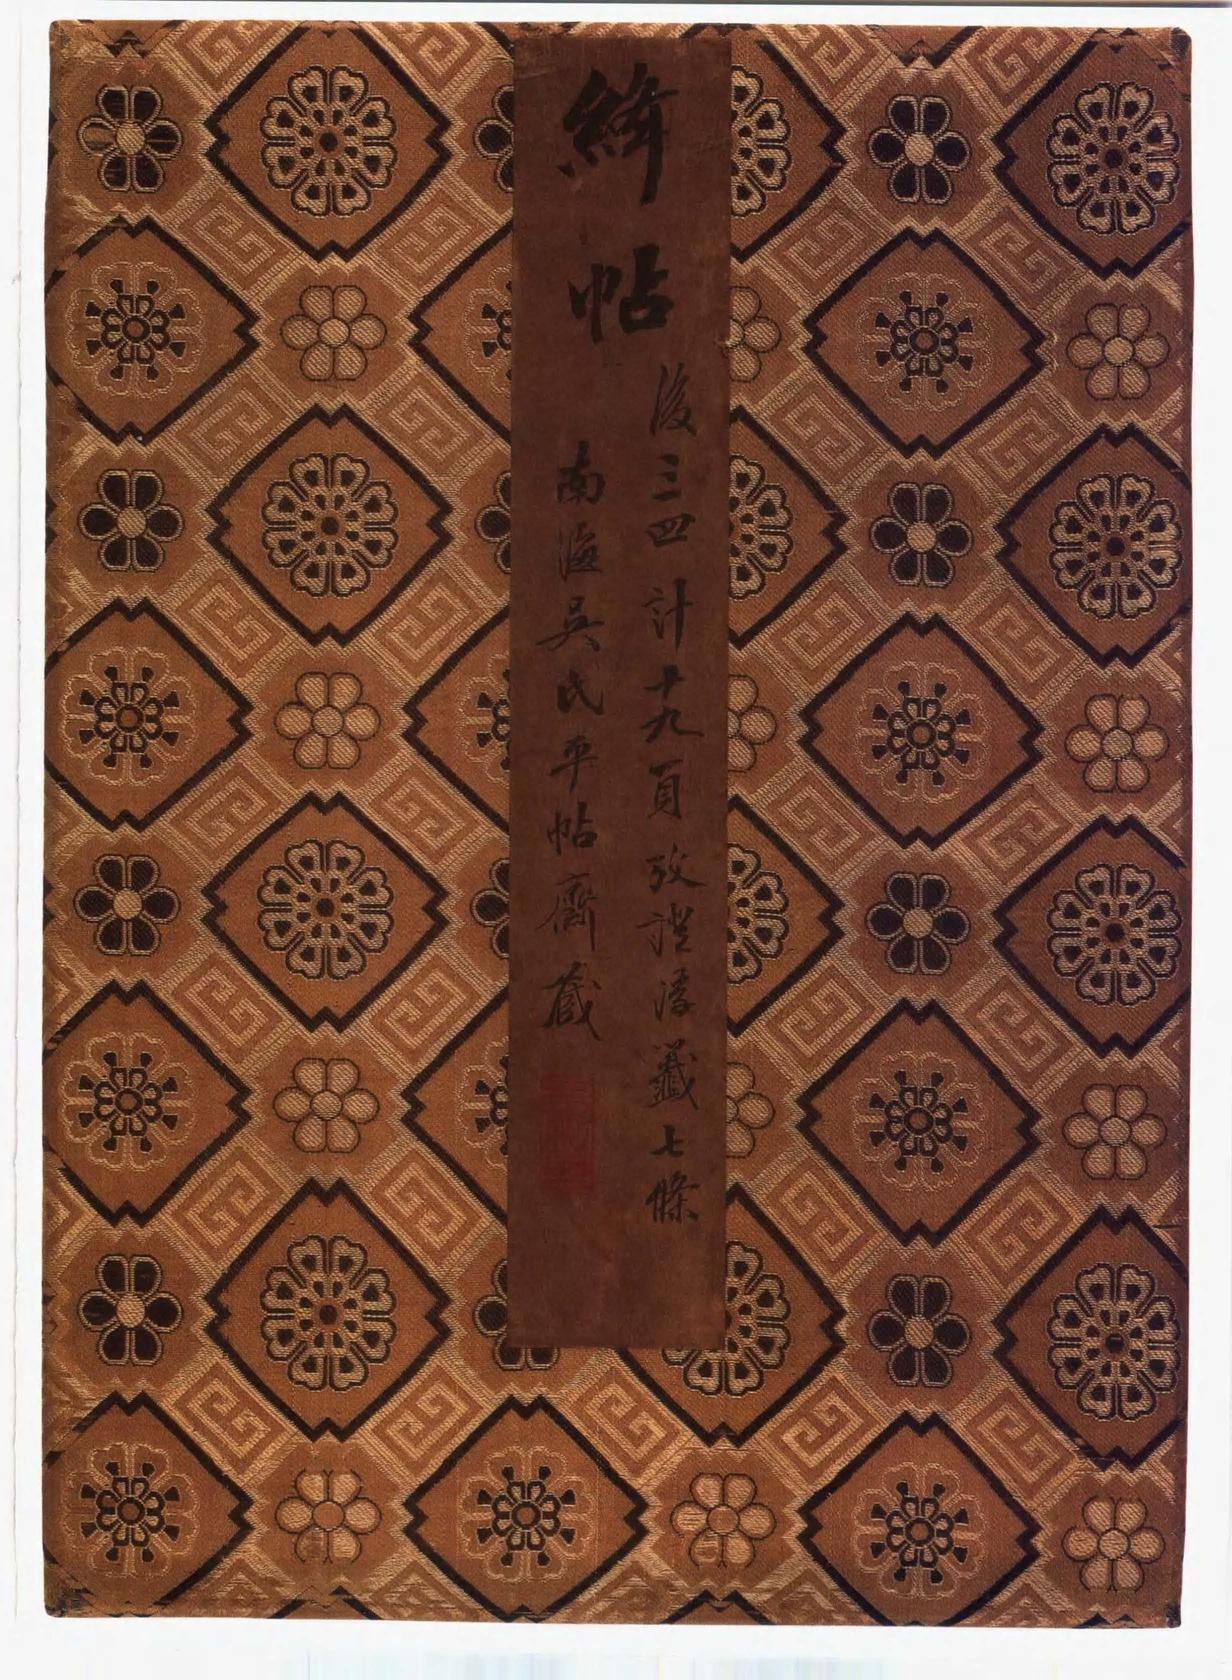 絳帖
後三四計十九頁攷證浮籤七條
南海吳氏平帖齋藏